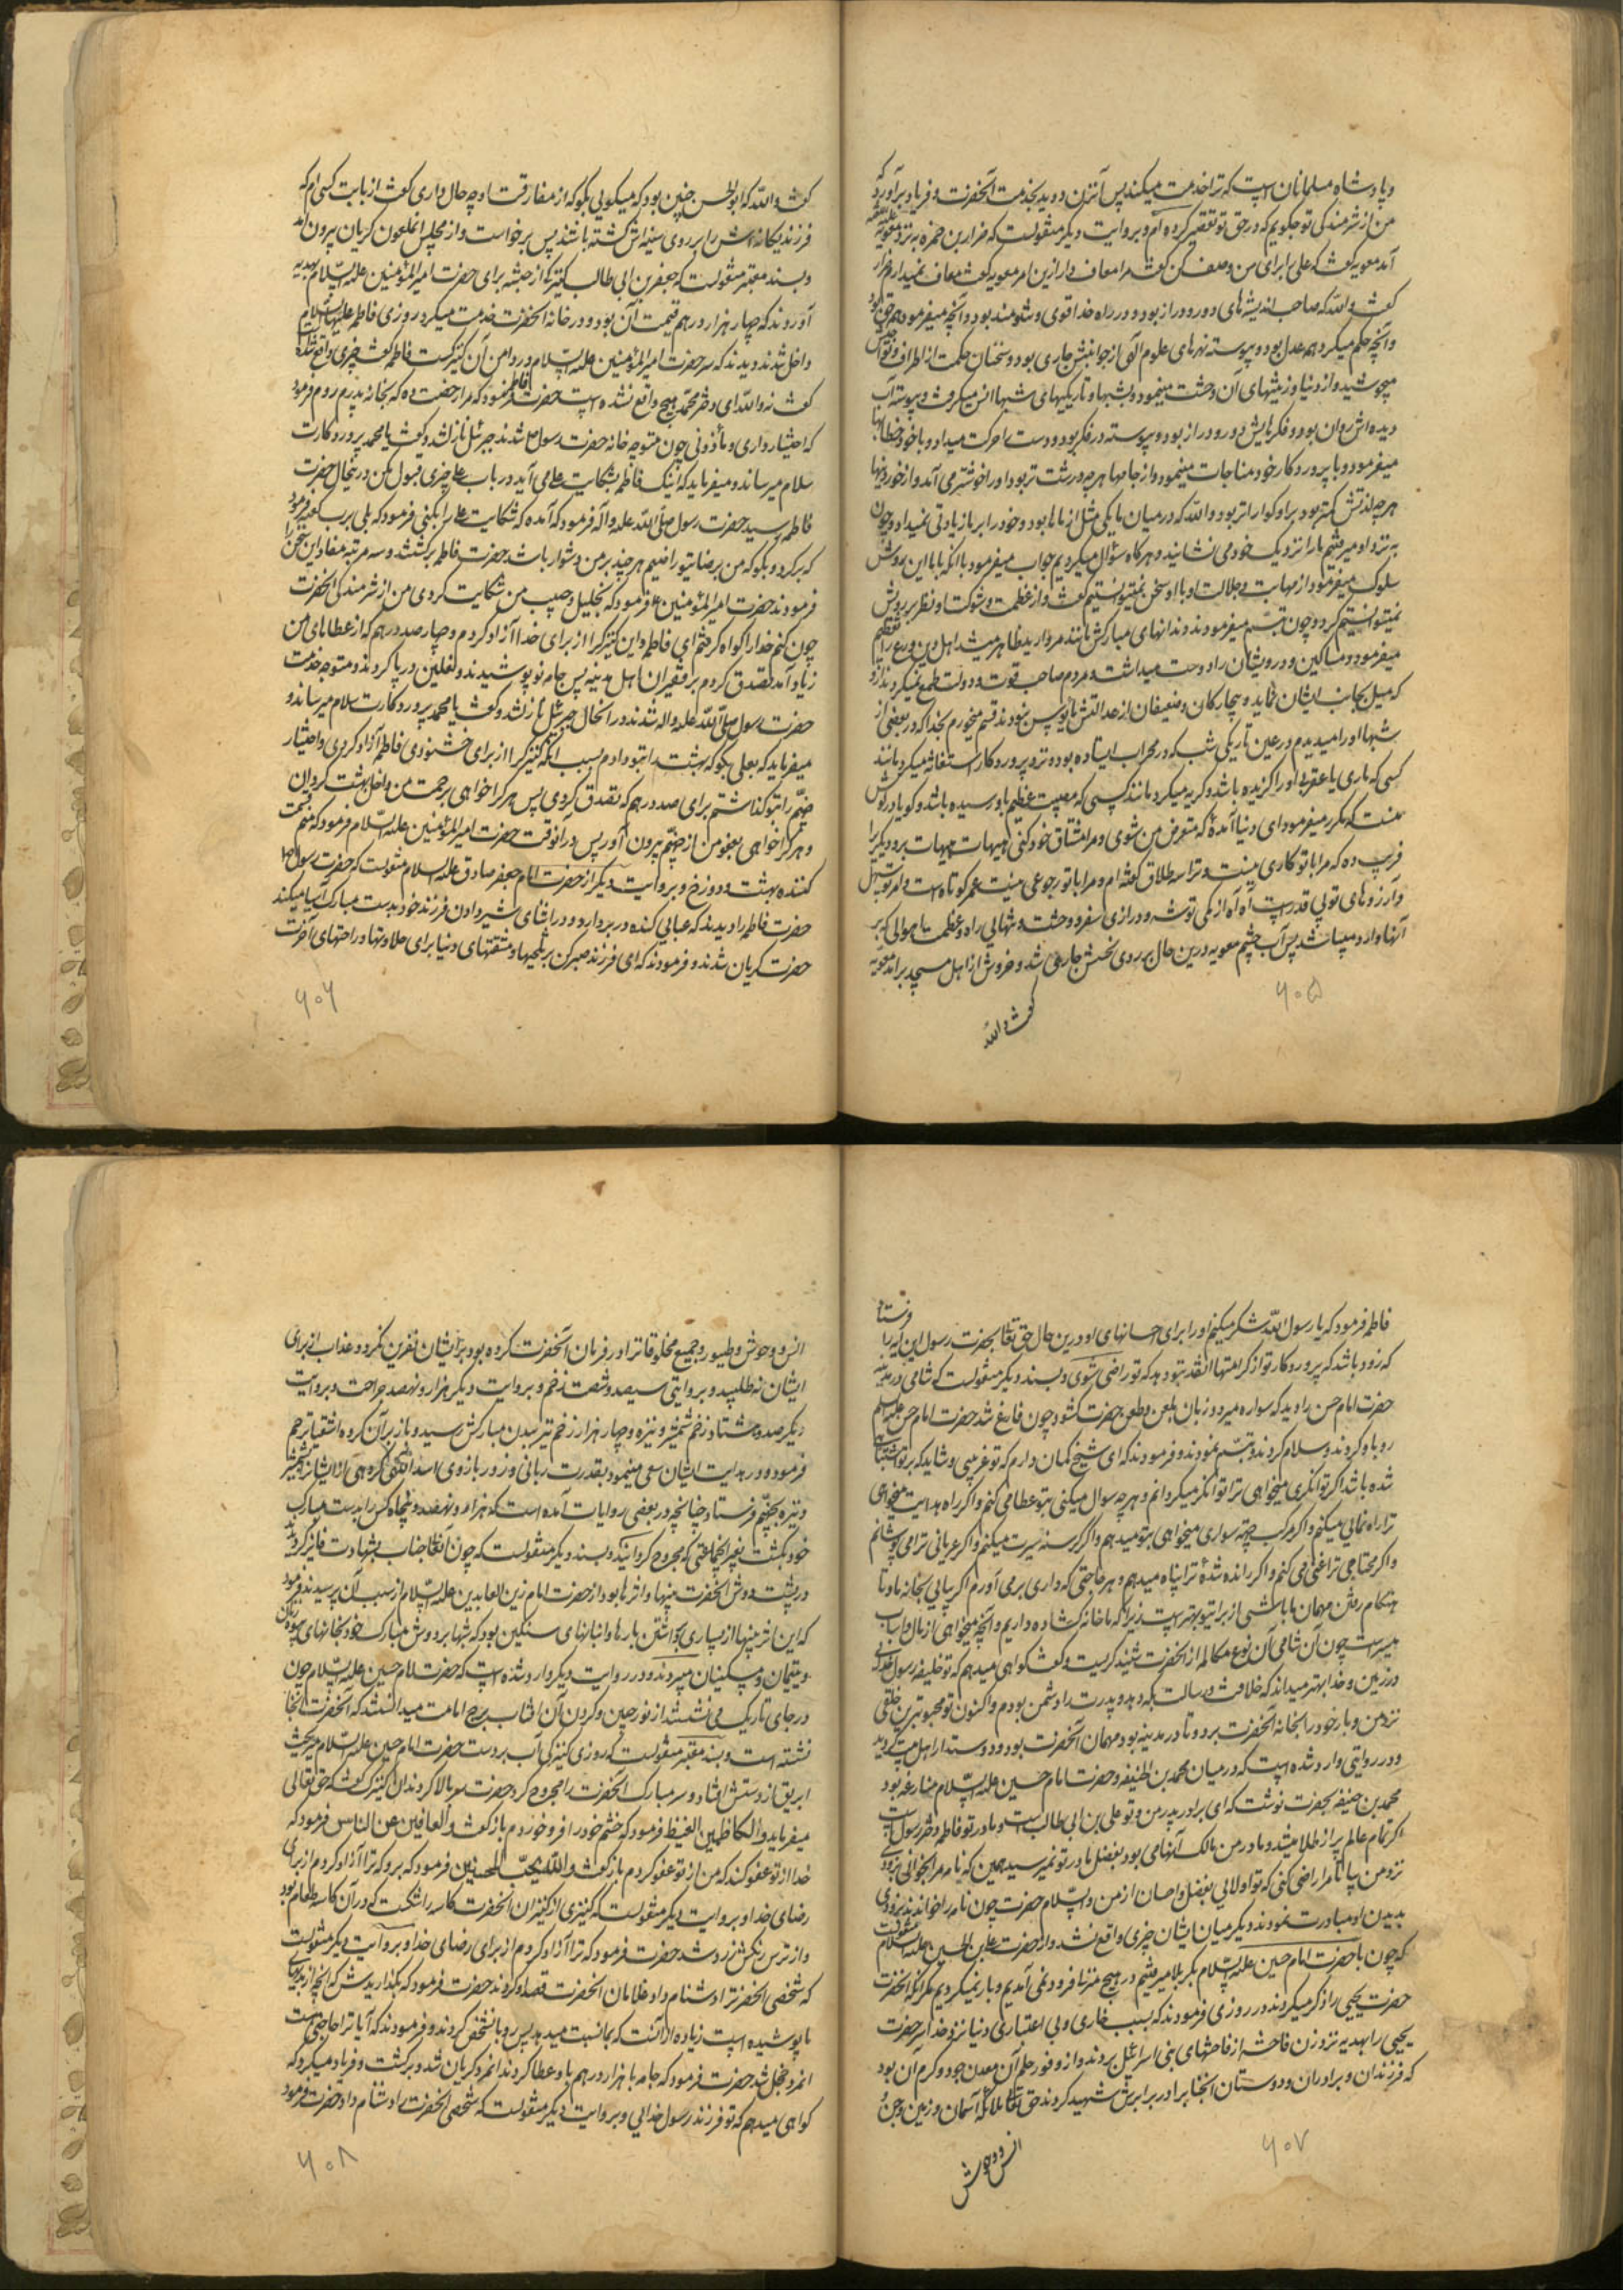 و پادشاه مسلمانان است که ترا خدمت میکند پس آنزن دوید بخدمت آنحضرت و فریاد برآورد که
من از شرمندگی تو چگویم که در حق تو تقصیر کرده‌ام و بروایت دیگر منقولست که ضرار بن ضمره به نزد معویه
آمد معویه گفت که علی را برای من وصف کن گفت مرا معاف دار ازین امر معویه گفت معاف نمیدارم ضرار
گفت والله که صاحب اندیشه‌های دور و دراز بود و در راه خدا قوی و تنومند بود و آنچه میفرمود همه حق بود
و آنچه حکم میکرد همه عدل بود و پیوسته نهرهای علوم الهی از جوانبش جاری بود و سخنان حکمت از اطراف و نواحیش
میجوشید و از دنیا و زینتهای آن وحشت مینمود و بشبها و تاریکیهای شبها انس میگرفت و پیوسته آب
دیده‌اش روان بود و فکرهایش دور و دراز بود و پیوسته در فکر بود و دست را حرکت میداد و با خود خطابها
میفرمود و با پروردکار خود مناجات مینمود و از جامها هر چه درشت تر بود او را خوشتر می آمد و از خوردنیها
هر چه لذتش کمتر بود بر او کواراتر بود والله که در میان ما یکی مثل از ما ها بود و خود را بر ما زیادتی نمیداد و چون
به نزد او میرفتیم ما را نزدیک خود می نشانید و هرکاه سؤال میکردیم جواب میفرمود با آنکه با ما این روش
سلوک میفرمود از مهابت و جلالت او با او سخن نمیتوانستیم گفت و از عظمت و شوکت او نظر بر رویش
نمیتوانستیم کرد و چون تبسّم میفرمود دندانهای مبارکش مانند مروارید ظاهر میشد اهل دین و ورع را تعظیم
میفرمود و مساکین و درویشان را دوست میداشت و مردم صاحب قوت و دولت طمع نمیکردند از او
که میل بجانب ایشان نماید و بیچارکان و ضعیفان از عدالتش مأیوس نبودند قسم میخورم بخدا که در بعضی از
شبها او را میدیدم در عین تاریکی شب که در محراب ایستاده بود و نزد پروردکار استغاثه میکرد مانند
کسی که ماری یا عقربی او را گزیده باشد و گریه میکرد مانند کسی که مصیبت عظیم باو رسیده باشد و گویا در گوش
منست که مکرر میفرمود ای دنیا آمدهٔ که متعرض من شوی و مرا مشتاق خود کنی هیهات هیهات برو دیگری را
فریب ده که مرا با تو کاری نیست و ترا سه طلاق گفته ام و مرا با تو رجوعی نیست عمر تو کوتاه است و امر تو سهل
و آرزوهای تو بی قدر است آه آه از کمی توشه و درازی سفر و وحشت و تنهائی راه و عظمت اهوالی که بر
آنها وارد میباید شد پس آب چشم معویه درین حال بر روی نحسش جاری شد و خروش از اهل مسجد برآمد معویه
گفت والله
۶۰۵
گفت والله که ابوالحسن چنین بود که میگویی بگو که از مفارقت او چه حال داری گفت از بابت کسی ام که
فرزند یگانه‌اش را بر روی سینه‌اش کشته باشند پس برخواست و از مجلس آنملعون گریان بیرون آمد
و بسند معتبر منقولست که جعفر بن ابی طالب کنیزکی از حبشه برای حضرت امیرالمؤمنین علیه السّلام بهدیه
آوردند که چهار هزار درهم قیمت آن بود و در خانهٔ آنحضرت خدمت میکرد روزی فاطمه علیها السلام
داخل شدند و دیدند که سر حضرت امیرالمؤمنین علیه السّلام در دامن آن کنیزکست فاطمه گفت چیزی واقع شده
گفت نه والله ای دختر محمّد هیچ واقع نشده است حضرت فاطمه فرمود که مرا رخصت ده که بخانهٔ پدرم روم فرمود
که اختیار داری و مأذونی چون متوجه خانه حضرت رسول ص شدند جبرئیل نازل شد و گفت یا محمد پروردکارت
سلام میرساند و میفرماید که اینک فاطمه بشکایت علی می آید در باب علی چیزی قبول مکن در اینحال حضرت
فاطمه رسید حضرت رسول صلی الله علیه و آله فرمود که آمده که شکایت علی را بکنی فرمود که بلی برب کعبه فرمود
که برگرد و بگو که من برضای تو راضیم هر چند بر من دشوار باشد حضرت فاطمه برگشت و سه مرتبه مفاد این سخن را
فرمودند حضرت امیرالمؤمنین ع فرمود که بخلیل و حبیب من شکایت کردی من از شرمندگی آنحضرت
چون کنم خدا را گواه گرفتم ای فاطمه و این کنیزک را از برای خدا آزاد کردم و چهار صد درهم که از عطاهای من
زیاد آمد تصدق کردم بر فقیران اهل مدینه پس جامه نو پوشیدند و نعلین در پا کردند و متوجه خدمت
حضرت رسول صلی الله علیه و اله شدند در آنحال جبرئیل نازل شد و گفت یا محمد پروردکارت سلام میرساند و
میفرماید که بعلی بگو که بهشت را بتو دادم بسبب آنکه کنیزک را از برای خشنودی فاطمه آزاد کردی و اختیار
جهنّم را بتو گذاشتم برای صد درهم که تصدق کردی پس هر کرا خواهی برحمت من داخل بهشت گردان
و هر کرا خواهی بعفو من از جهنّم بیرون آور پس در آنوقت حضرت امیرالمؤمنین علیه السّلام فرمود که منم قسمت
کننده بهشت و دوزخ و بروایت دیگر از حضرت امام جعفر صادق علیه السلام منقولست که حضرت رسول ص
حضرت فاطمه را دیدند که عبایی کنده در بر دارد و در اثنای شیر دادن فرزند خود بدست مبارک آسیا میکند
حضرت گریان شدند و فرمودند که ای فرزند صبر کن بر تلخیها و مشقتهای دنیا برای حلاوتها و راحتهای آخرت
۶۰۶
فاطمه فرمود که یا رسول الله شکر میکنم او را برای احسانهای او درین حال حق تعالی بحضرت رسول این آیه را فرستاد
که زود باشد که پروردکار تو از کرامتها آنقدر بتو بدهد که تو راضی شوی و بسند دیگر منقولست که شامی در مدینه
حضرت امام حسن را دید که سواره میرود زبان بلعن و طعن حضرت گشود چون فارغ شد حضرت امام حسن علیه السلام
رو باو کردند و سلام کردند و تبسّم نمودند و فرمودند که ای شیخ گمان دارم که تو غریبی و شاید که بر تو مشتبه
شده باشد اگر توانگری میخواهی ترا توانگر میگردانم و هر چه سوال میکنی بتو عطا می کنم و اگر راه هدایت میخواهی
ترا راه نمائی میکنم و اگر مرکب جهة سواری میخواهی بتو میدهم و اگر گرسنه سیرت میکنم و اگر عریانی ترا می پوشانم
و اگر محتاجی ترا غنی می کنم و اگر رانده شدهٔ ترا پناه میدهم و هر حاجتی که داری برمی آورم اگر بیائی بخانه ما و تا
هنگام رفتن مهمان ما باشی از برای تو بهتر است زیرا که ما خانه گشاده داریم و آنچه میخواهی از مال و اسباب
میسر است چون آن شامی آن نوع مکالمه از آنحضرت شنید گریست و گفت گواهی میدهم که تو خلیفه رسول خدائی
در زمین و خدا بهتر میداند که خلافت و رسالت بکه دهد و پدرت را دشمن بودم و اکنون تو محبوبترین خلقی
نزد من و بار خود را بخانه آنحضرت برد و تا در مدینه بود مهمان آنحضرت بود و دوستدار اهل بیت گردید
و در روایتی وارد شده است که در میان محمد بن الحنیفه و حضرت امام حسین علیه السّلام منازعه بود
محمد بن حنیفه بحضرت نوشت که ای برادر پدر من و تو علی بن ابی طالب است و مادر تو فاطمه دختر رسول است
اگر تمام عالم پر از طلا میشد و مادر من مالک آنها می بود بفضل مادر تو نمیرسید همین که نامه مرا بخوانی بزودی
نزد من بیا تا مرا راضی کنی که تو اولائی بفضل و احسان از من والسّلام حضرت چون نامه را خواندند بزودی
بدیدن او مبادرت نمودند و دیگر میان ایشان چیزی واقع نشد و از حضرت علی بن الحسین علیه السلام منقولست
که چون با حضرت امام حسین علیه السّلام بکربلا میرفتیم در هیچ منزلی فرود نمی آمدیم و بار نمیکردیم مگر آنکه آنحضرت
حضرت یحیی را ذکر میکردند و در روزی فرمودند که بسبب خواری و بی اعتباری دنیا نزد خدا سر حضرت
یحیی را بهدیه نزد زن فاحشه از فاحشهای بنی اسرائیل بردند و از وفور حلم آن معدن جود و کرم آن بود
که فرزندان و برادران و دوستان آنجناب را در برابرش شهید کردند حق تعالی ملائکه آسمان و زمین و جن و
انس و وحوش
۶۰۷
انس و وحوش و طیور و جمیع مخلوقات را در فرمان آنحضرت کرده بود بر ایشان نفرین نکرد و عذاب از برای
ایشان نه طلبید و بروایتی سیصد و شصت زخم و بروایت دیگر هزار و نهصد جراحت و بروایت
دیگر صد و هشتاد زخم شمشیر و نیزه و چهار هزار زخم تیر ببدن مبارکش رسید و باز بر آن گروه اشقیا ترحم
فرمود و در هدایت ایشان سعی مینمود و بقدرت ربانی و زور بازوی اسد اللهی گروهی از ایشان را بشمشیر
و نیزه بجهنّم فرستاد چنانچه در بعضی روایات آمده است که هزار و نهصد و پنجاه کس را بدست مبارک
خود بکشت بغیر آنجماعتی که مجروح گردانید و بسند دیگر منقولست که چون آنعالیجناب بشهادت فایز گردید
در پشت و دوش آنحضرت پینها و اثرها بود از حضرت امام زین العابدین علیه السّلام از سبب آن پرسیدند فرمود
که این اثر پینها از بسیاری برداشتن بارها و انبانهای سنگین بود که شبها بر دوش مبارک خود بخانهای بیوه زنان
و یتیمان و مسکینان میبردند و در روایت دیگر وارد شده است که حضرت امام حسین علیه السّلام چون
در جای تاریک می نشستند از نور جبین و گردن آن آفتاب برج امامت میدانستند که آنحضرت آنجا
نشسته است و بسند معتبر منقولست که روزی کنیزکی آب بر دست حضرت امام حسین علیه السلام میریخت
ابریق از دستش افتاد و سر مبارک آنحضرت را مجروح کرد حضرت سر بالا کردند آن کنیزک گفت که حق تعالی
میفرماید والکاظمین الغیظ فرمود که خشم خود را فرو خوردم باز گفت والعافین عن الناس فرمود که
خدا از تو عفو کند که من از تو عفو کردم باز گفت والله یحبّ المحسنین فرمود که برو که ترا آزاد کردم از برای
رضای خدا و بروایت دیگر منقولست که کنیزی از کنیزان آنحضرت کاسه را شکست که در آن کاسه طعام بود
و از ترس رنگش زرد شد حضرت فرمود که ترا آزاد کردم از برای رضای خدا و بروایت دیگر منقولست
که شخصی آنحضرت را دشنام داد غلامان آنحضرت قصد او کردند حضرت فرمود که بگذاریدش که آنچه از بدیهای
ما پوشیده است زیاده از آنست که بما نسبت میدهد پس رو بآنشخص کردند و فرمودند که آیا ترا حاجتی هست
آنمرد خجل شد حضرت فرمود که جامه با هزار درهم باو عطا کردند آنمرد گریان شد و برگشت و فریاد میکرد که
گواهی میدهم که تو فرزند رسول خدائی و بروایت دیگر منقولست که شخصی آنحضرت را دشنام داد حضرت فرمود
۶۰۸